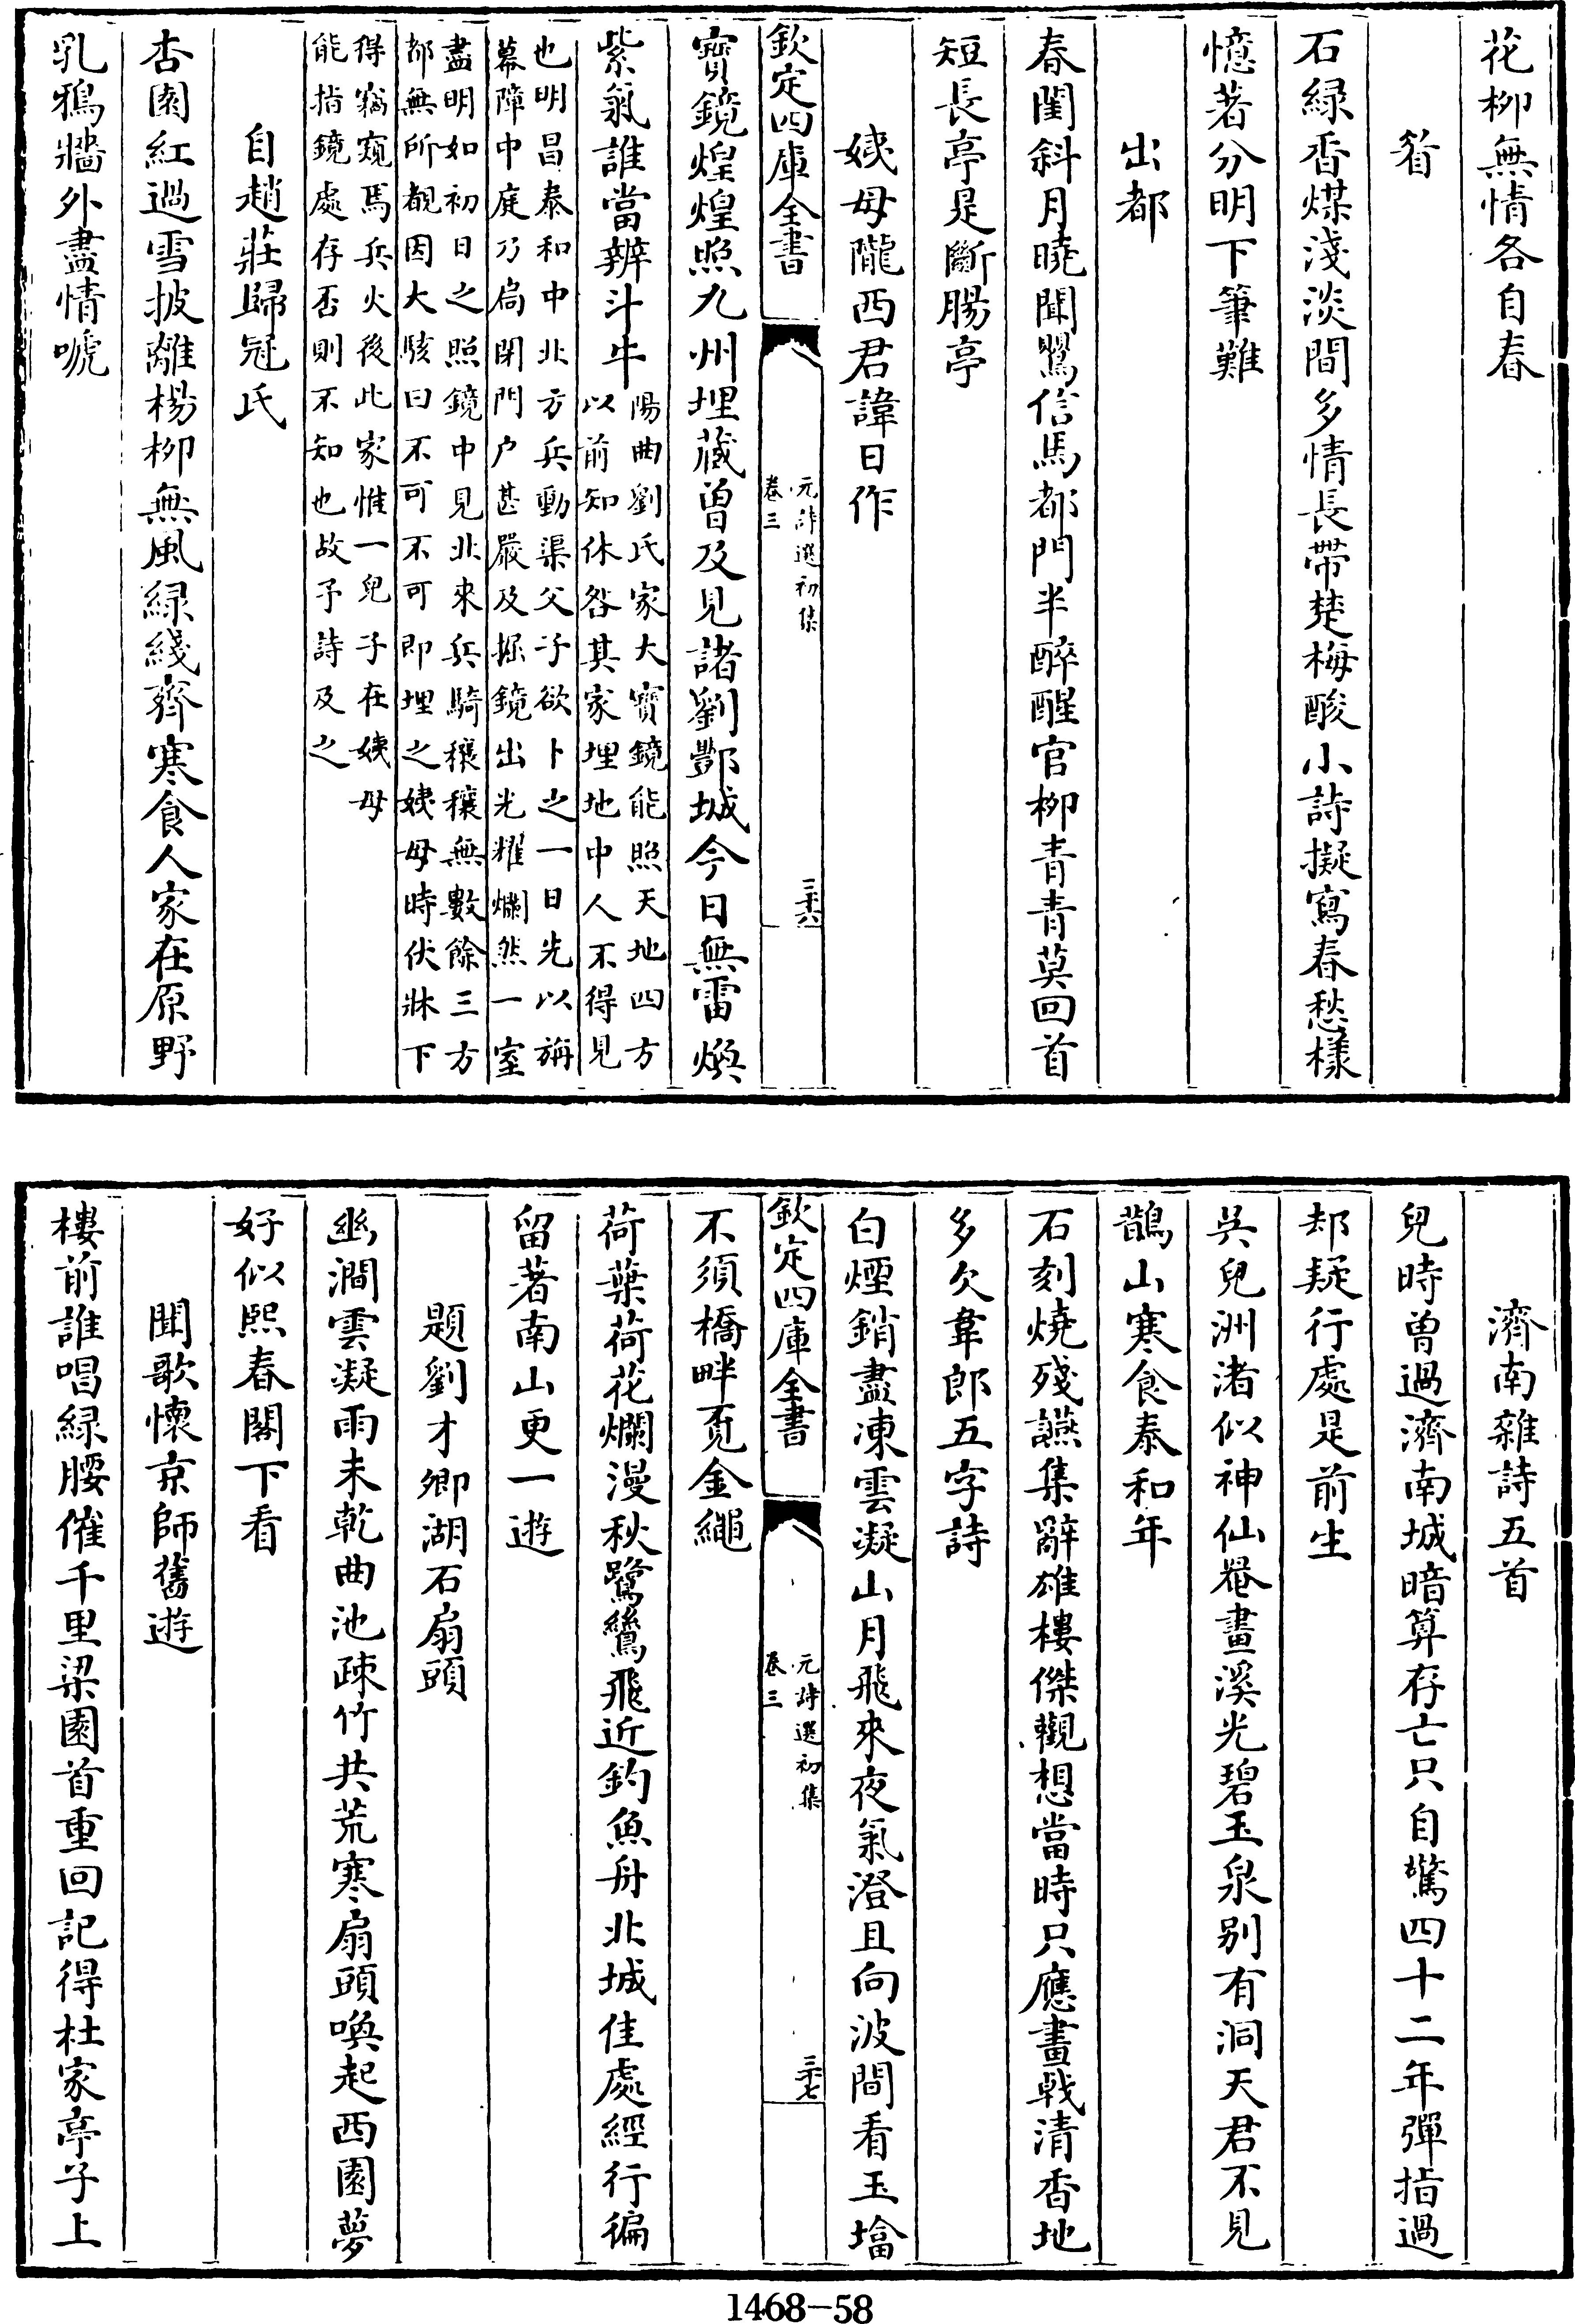 花柳無情各自春
䈞
石緑香煤淺淡間多情長帶楚梅酸小詩擬寫春愁樣
憶著分明下筆難
出都
春閨斜月曉聞鶯信馬都門半醉醒官柳青青莫回首
短長亭是斷腸亭
姨母隴西君諱日作
欽定四庫全書
元詩選初集
卷三
三十六
寳鏡煌煌照九州埋藏曽及見諸劉酆城今日無雷煥
紫氣誰當辨斗牛
陽曲劉氏家大寳鏡能照天地四方
以前知休咎其家埋地中人不得見
也明昌泰和中北方兵動渠父子欲卜之一日先以旃
幕障中庭乃扃閉門户甚嚴及掘鏡出光耀爛然一室
盡明如初日之照鏡中見北來兵騎穰穰無數餘三方
都無所覩因大駭曰不可不可即埋之姨母時伏牀下
得竊窺焉兵火後此家惟一兒子在姨母
能指鏡處存否則不知也故予詩及之
自趙莊歸冠氏
杏園紅過雪披離楊柳無風緑綫齊寒食人家在原野
乳鴉牆外盡情嗁
濟南雜詩五首
兒時曽過濟南城暗算存亡只自驚四十二年彈指過
却疑行處是前生
吳兒洲渚似神仙罨畫溪光碧玉泉别有洞天君不見
鵲山寒食泰和年
石刻燒殘讌集辭雄樓傑觀想當時只應畫戟清香地
多欠韋郎五字詩
白煙銷盡凍雲凝山月飛來夜氣澄且向波間看玉塔
欽定四庫全書
元詩選初集
卷三
三十七
不須橋畔覓金繩
荷葉荷花爛漫秋鷺鷥飛近釣魚舟北城佳處經行徧
留著南山更一遊
題劉才卿湖石扇頭
幽澗雲凝雨未乾曲池疎竹共荒寒扇頭喚起西園夢
好似熙春閣下看
聞歌懷京師舊遊
樓前誰唱緑腰催千里梁園首重回記得杜家亭子上
1468-58